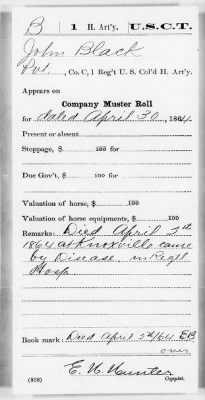 B | 1 H. Art'y. | U.S.C.T.
John Black
Pvt., Co. C, 1 Reg't U. S. Col'd H. Art'y.
Appears on
Company Muster Roll
for dated April 30, 1864.
Present or absent
Stoppage, $ 100 for
Due Gov't, $ 100 for
Valuation of horse, $ 100
Valuation of horse equipments, $ 100
Remarks: Died April 2th
1864 at Knoxville cause
by Disease in Regtl
Hosp
Book mark: Died April 2d/64 EB
over
E. W. Hunter
(358) Copyist.